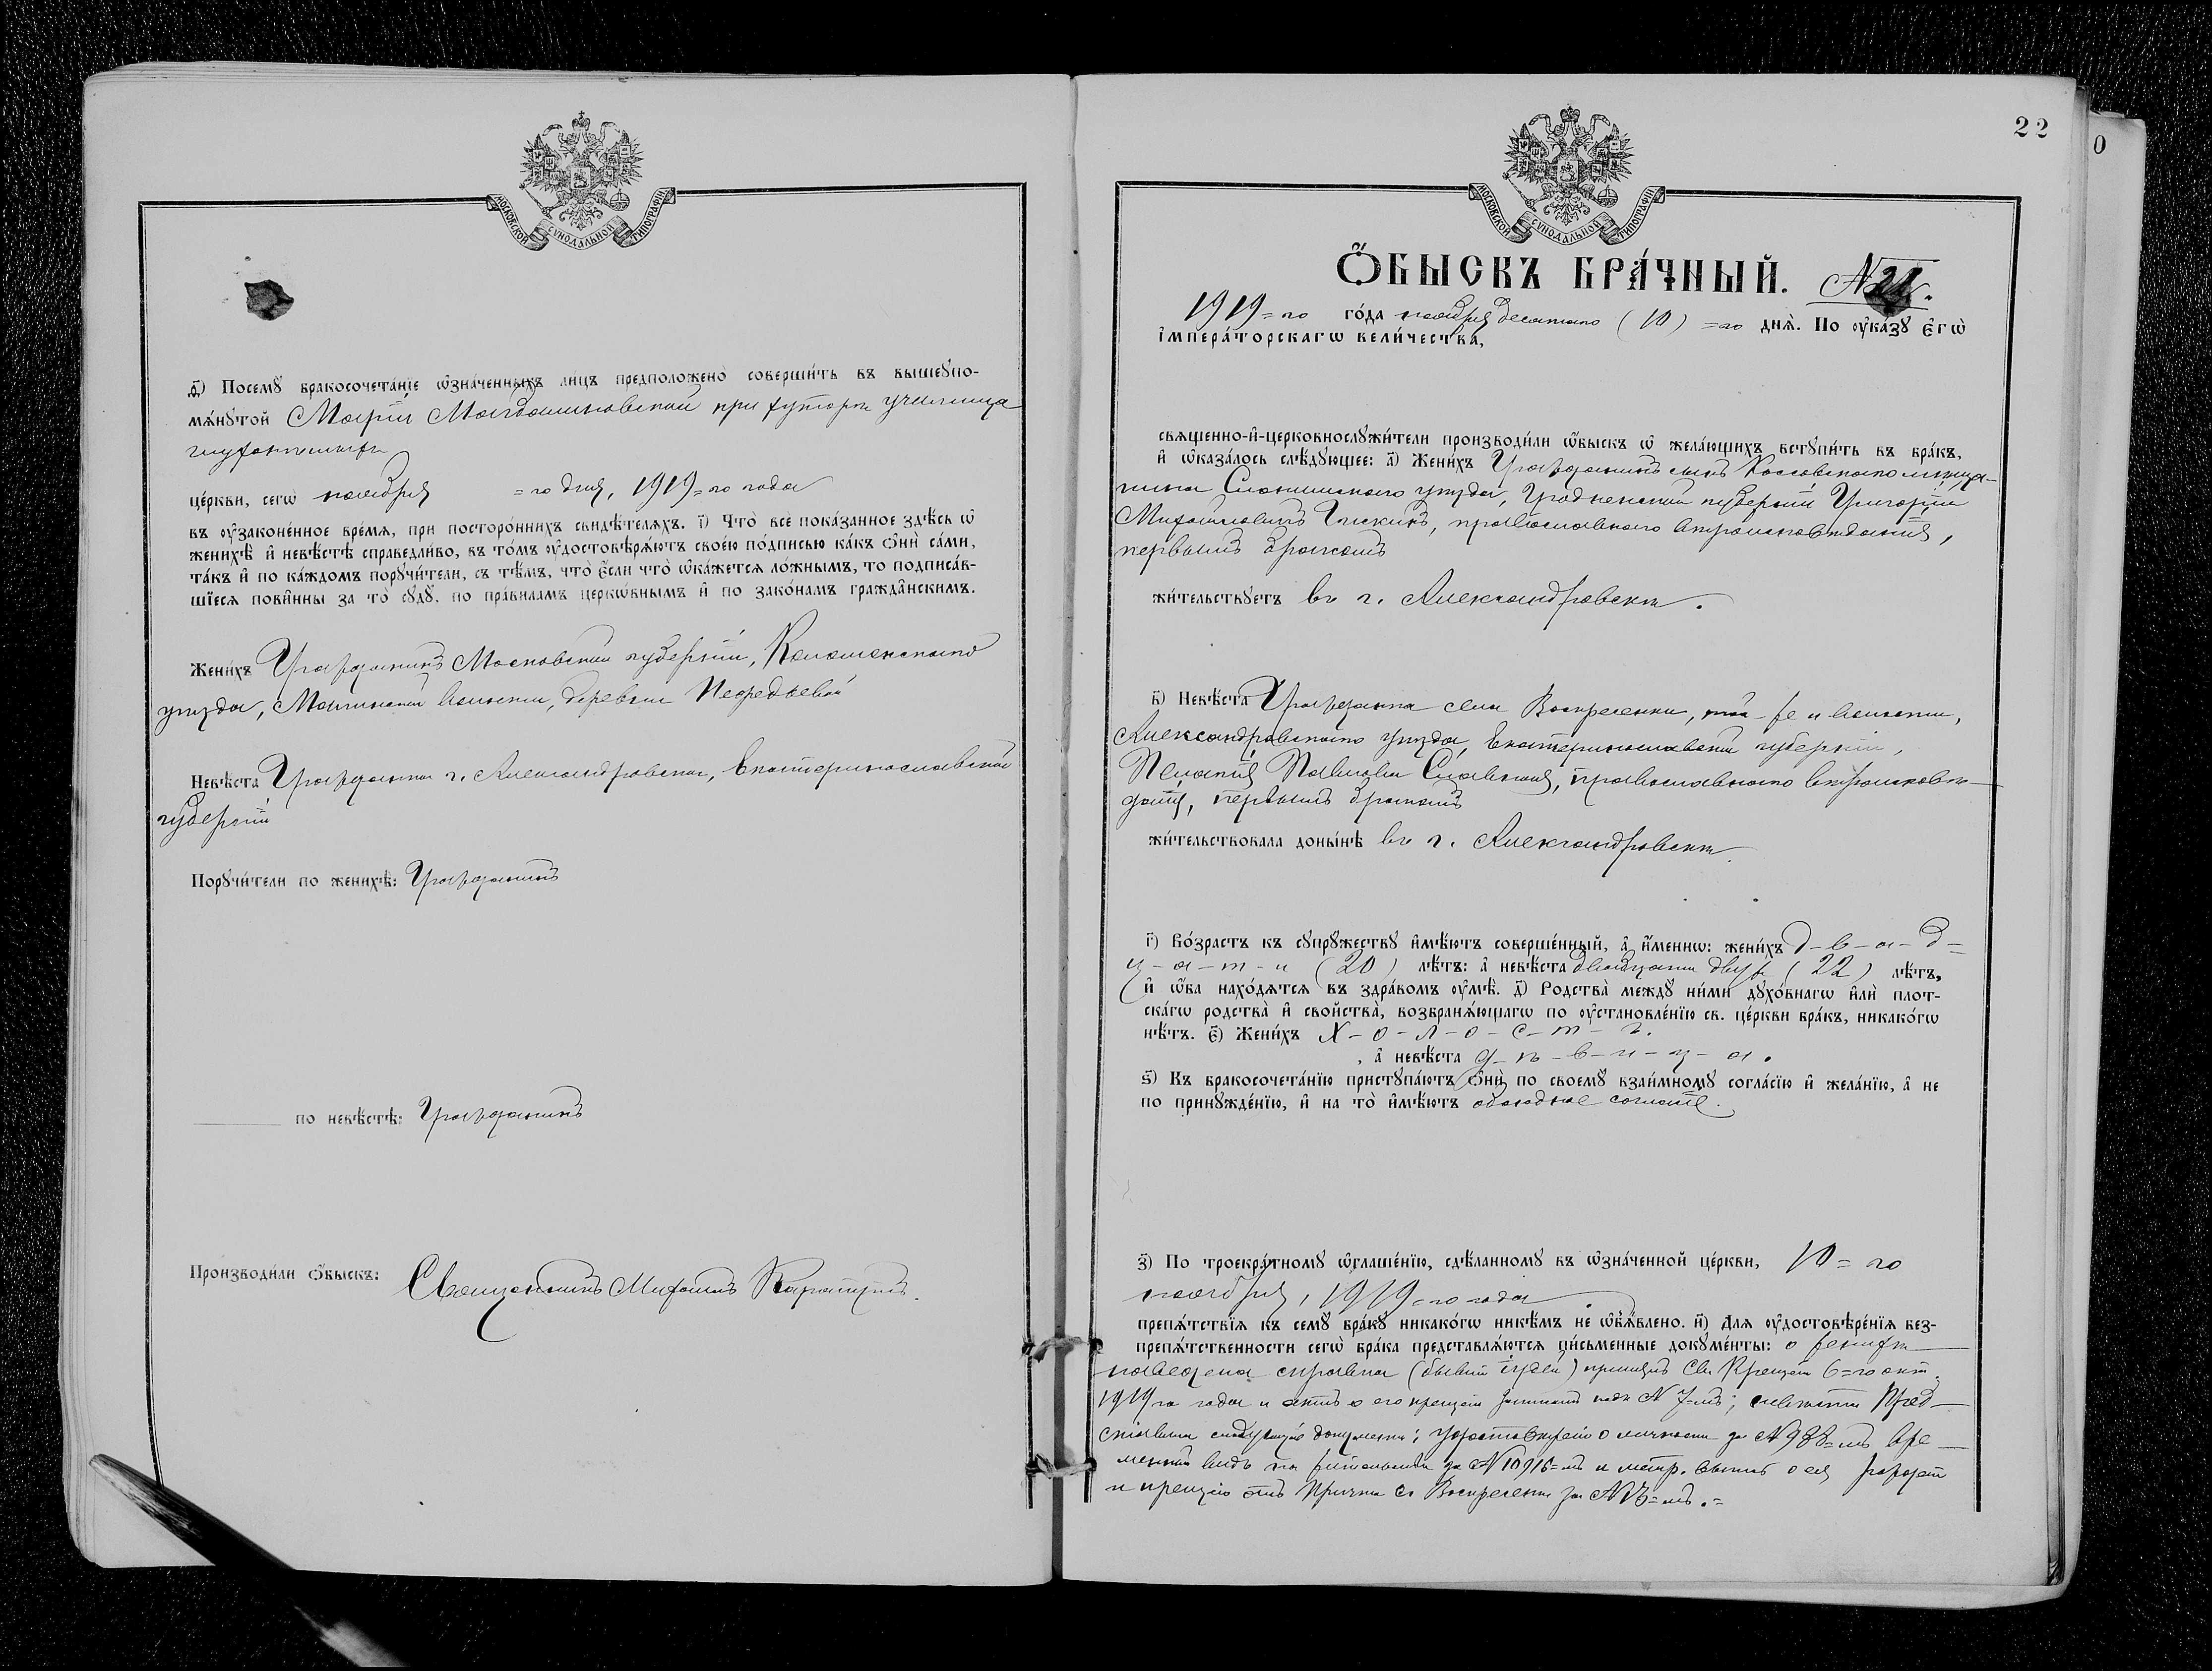 МОСКОВСКОЙ СѴНОДАЛЬНОЙ ТИПОГРАФІИ
д҃) Посемꙋ бракосочета́нїе ѡ҆зна́ченныхъ ли́цъ предположено̀ соверши́ть въ вышеꙋпо-
мѧ́нꙋтой Маріи Магдалиновской при хуторѣ училища
глухонѣмыхъ
це́ркви, сегѡ̀ ноября =го дня, 1919=го года
въ ᲂу҆законе́нное вре́мѧ, при посторо́ннихъ свидѣ́телѧхъ. і҃) Что̀ всѐ пока́занное здѣ́сь ѡ҆
женихѣ̀ и҆ невѣ́стѣ справедли́во, въ то́мъ ᲂу҆достовѣрѧ́ютъ свое́ю по́дписью ка́къ ѻ҆нѝ са́ми,
та́къ и҆ по ка́ждомъ порꙋчи́тели, съ тѣ́мъ, что̀ є҆́сли что̀ ѡ҆ка́жетсѧ ло́жнымъ, то подписа́в-
шїесѧ пови́нны за то̀ сꙋдꙋ̀. по пра́виламъ церко́внымъ и҆ по зако́намъ гражда́нскимъ.
Жени́хъ Гражданинъ Московской губерніи, Коломенскаго
уѣзда, Малинской волости, деревни
Невѣ́ста Гражданка г. Александровска, Екатеринославской
губерніи
Порꙋчи́тели по женихѣ̀: Гражданинъ
по невѣ́стѣ: Гражданинъ
Производи́ли ѻ҆́быскъ: Священникъ Михаилъ
22
0
МОСКОВСКОЙ СѴНОДАЛЬНОЙ ТИПОГРАФІИ
Ѻ҆́БЫСКЪ БРА́ЧНЫЙ. № 21.
1919=го го́да ноября десятаго (10)=го днѧ̀. По ᲂу҆ка́зꙋ є҆гѡ̀
і҆мпера́торскагѡ вели́чества,
свѧще́нно-и҆-церковнослꙋжи́тели производи́ли ѡ҆́быскъ ѡ҆ жела́ющихъ встꙋпи́ть въ бра́къ,
и҆ ѡ҆каза́лось слѣ́дꙋющее: а҃) Жени́хъ Гражданинъ сынъ Коссовскаго мѣща-
нина Слонимскаго уѣзда, Гродненской губерніи Григорій
Михайловичъ, православнаго вѣроисповѣданія,
первымъ бракомъ
жи́тельствꙋетъ въ г. Александровскѣ.
в҃) Невѣ́ста Гражданка села Воскресенки, той-же и волости,
Александровскаго уѣзда, Екатеринославской губерніи,
Пелагія Павлова Славская, православнаго вѣроисповѣ-
данія, первымъ бракомъ
жи́тельствовала доны́нѣ въ г. Александровскѣ
г҃) Во́зрастъ къ сꙋпрꙋ́жествꙋ и҆мѣ́ютъ соверше́нный, а҆ и҆́менно: жени́хъ д-в-а-д=
ц-а-т-и (20) лѣ́тъ: а҆ невѣ́ста двадцати двухъ (22) лѣ́тъ,
и҆ ѻ҆́ба нахо́дѧтсѧ въ здра́вомъ ᲂу҆мѣ̀. д҃) Родства̀ междꙋ ни́ми дꙋхо́внагѡ и҆лѝ плот-
ска́гѡ родства̀ и҆ сво́йства̀, возбранѧ́ющагѡ по ᲂу҆становле́нїю св. це́ркви бра́къ, никако́гѡ
нѣ́тъ. є҃) Жени́хъ х-о-л-о-с-т-ъ.
, а҆ невѣ́ста д-ѣ-в-и-ц-а.
ѕ҃) Къ бракосочета́нїю пристꙋпа́ютъ ѻ҆нѝ по своемꙋ̀ взаи́мномꙋ согла́сїю и҆ жела́нїю, а҆ не
по принꙋжде́нїю, и҆ на то̀ и҆мѣ́ютъ обоюдное согласіе.
з҃) По троекра́тномꙋ ѡ҆глаше́нїю, сдѣ́ланномꙋ въ ѡ҆зна́ченной це́ркви, 10=го
ноября, 1919=го года
препѧ́тствїѧ къ семꙋ̀ бра́кꙋ никако́гѡ никѣ́мъ не ѡ҆б̾ѧ́влено. и҃) Длѧ ᲂу҆достовѣре́нїѧ без-
препѧ́тственности сегѡ̀ бра́ка представлѧ́ютсѧ пи́сьменные докꙋме́нты: о женихѣ
наведена справка (бывшій іудей) принялъ Св. Крещеніе 6=го окт.
1919 го года и актъ о его крещеніи записанъ подъ № 7=мъ; невѣста пред-
ставила слѣдующіе документы: удостовѣреніе о личности за № 988=мъ вре-
менный видъ на жительство за № 10916=мъ и метр. выпись о ея рожденіи
и крещеніи отъ причта с. Воскресенки за